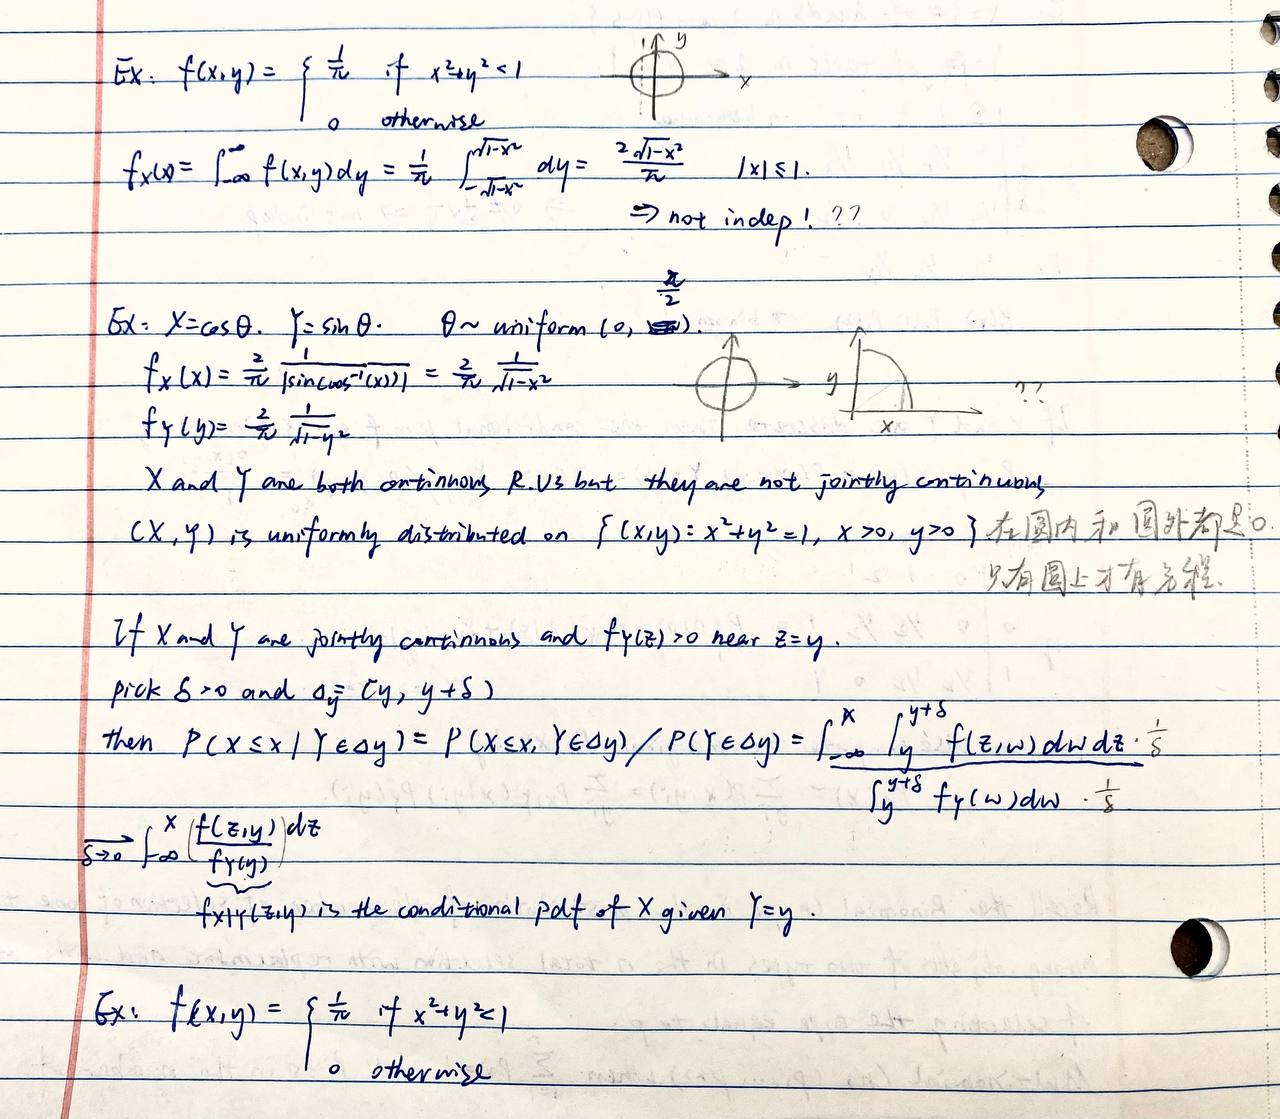 Ex: f(x,y) = { 1/π if x²+y² < 1
0 otherwise
y
x
f_X(x) = ∫_{-∞}^{∞} f(x,y) dy = 1/π ∫_{-√(1-x²)}^{√(1-x²)} dy = 2√(1-x²)/π |x| ≤ 1.
⇒ not indep! ??
Ex: X=cosθ. Y=sinθ. θ ~ uniform (0, π/2).
f_X(x) = 2/π 1/|sin(cos⁻¹(x))| = 2/π 1/√(1-x²)
y
x
??
f_Y(y) = 2/π 1/√(1-y²)
X and Y are both continuous R.Vs but they are not jointly continuous
(X, Y) is uniformly distributed on {(x,y): x²+y²=1, x>0, y>0} 在圆内和圆外都是0.
只有圆上才有方程.
If X and Y are jointly continuous and f_Y(z)>0 near z=y.
pick δ>0 and Δy = [y, y+δ)
then P(X≤x | Y∈Δy) = P(X≤x, Y∈Δy) / P(Y∈Δy) = ∫_{-∞}^{x} ∫_{y}^{y+δ} f(z,w) dw dz · 1/δ
∫_{y}^{y+δ} f_Y(w) dw · 1/δ
→_{δ→0} ∫_{-∞}^{x} (f(z,y)/f_Y(y)) dz
f_{X|Y}(z,y) is the conditional pdf of X given Y=y.
Ex: f(x,y) = { 1/π if x²+y²<1
0 otherwise